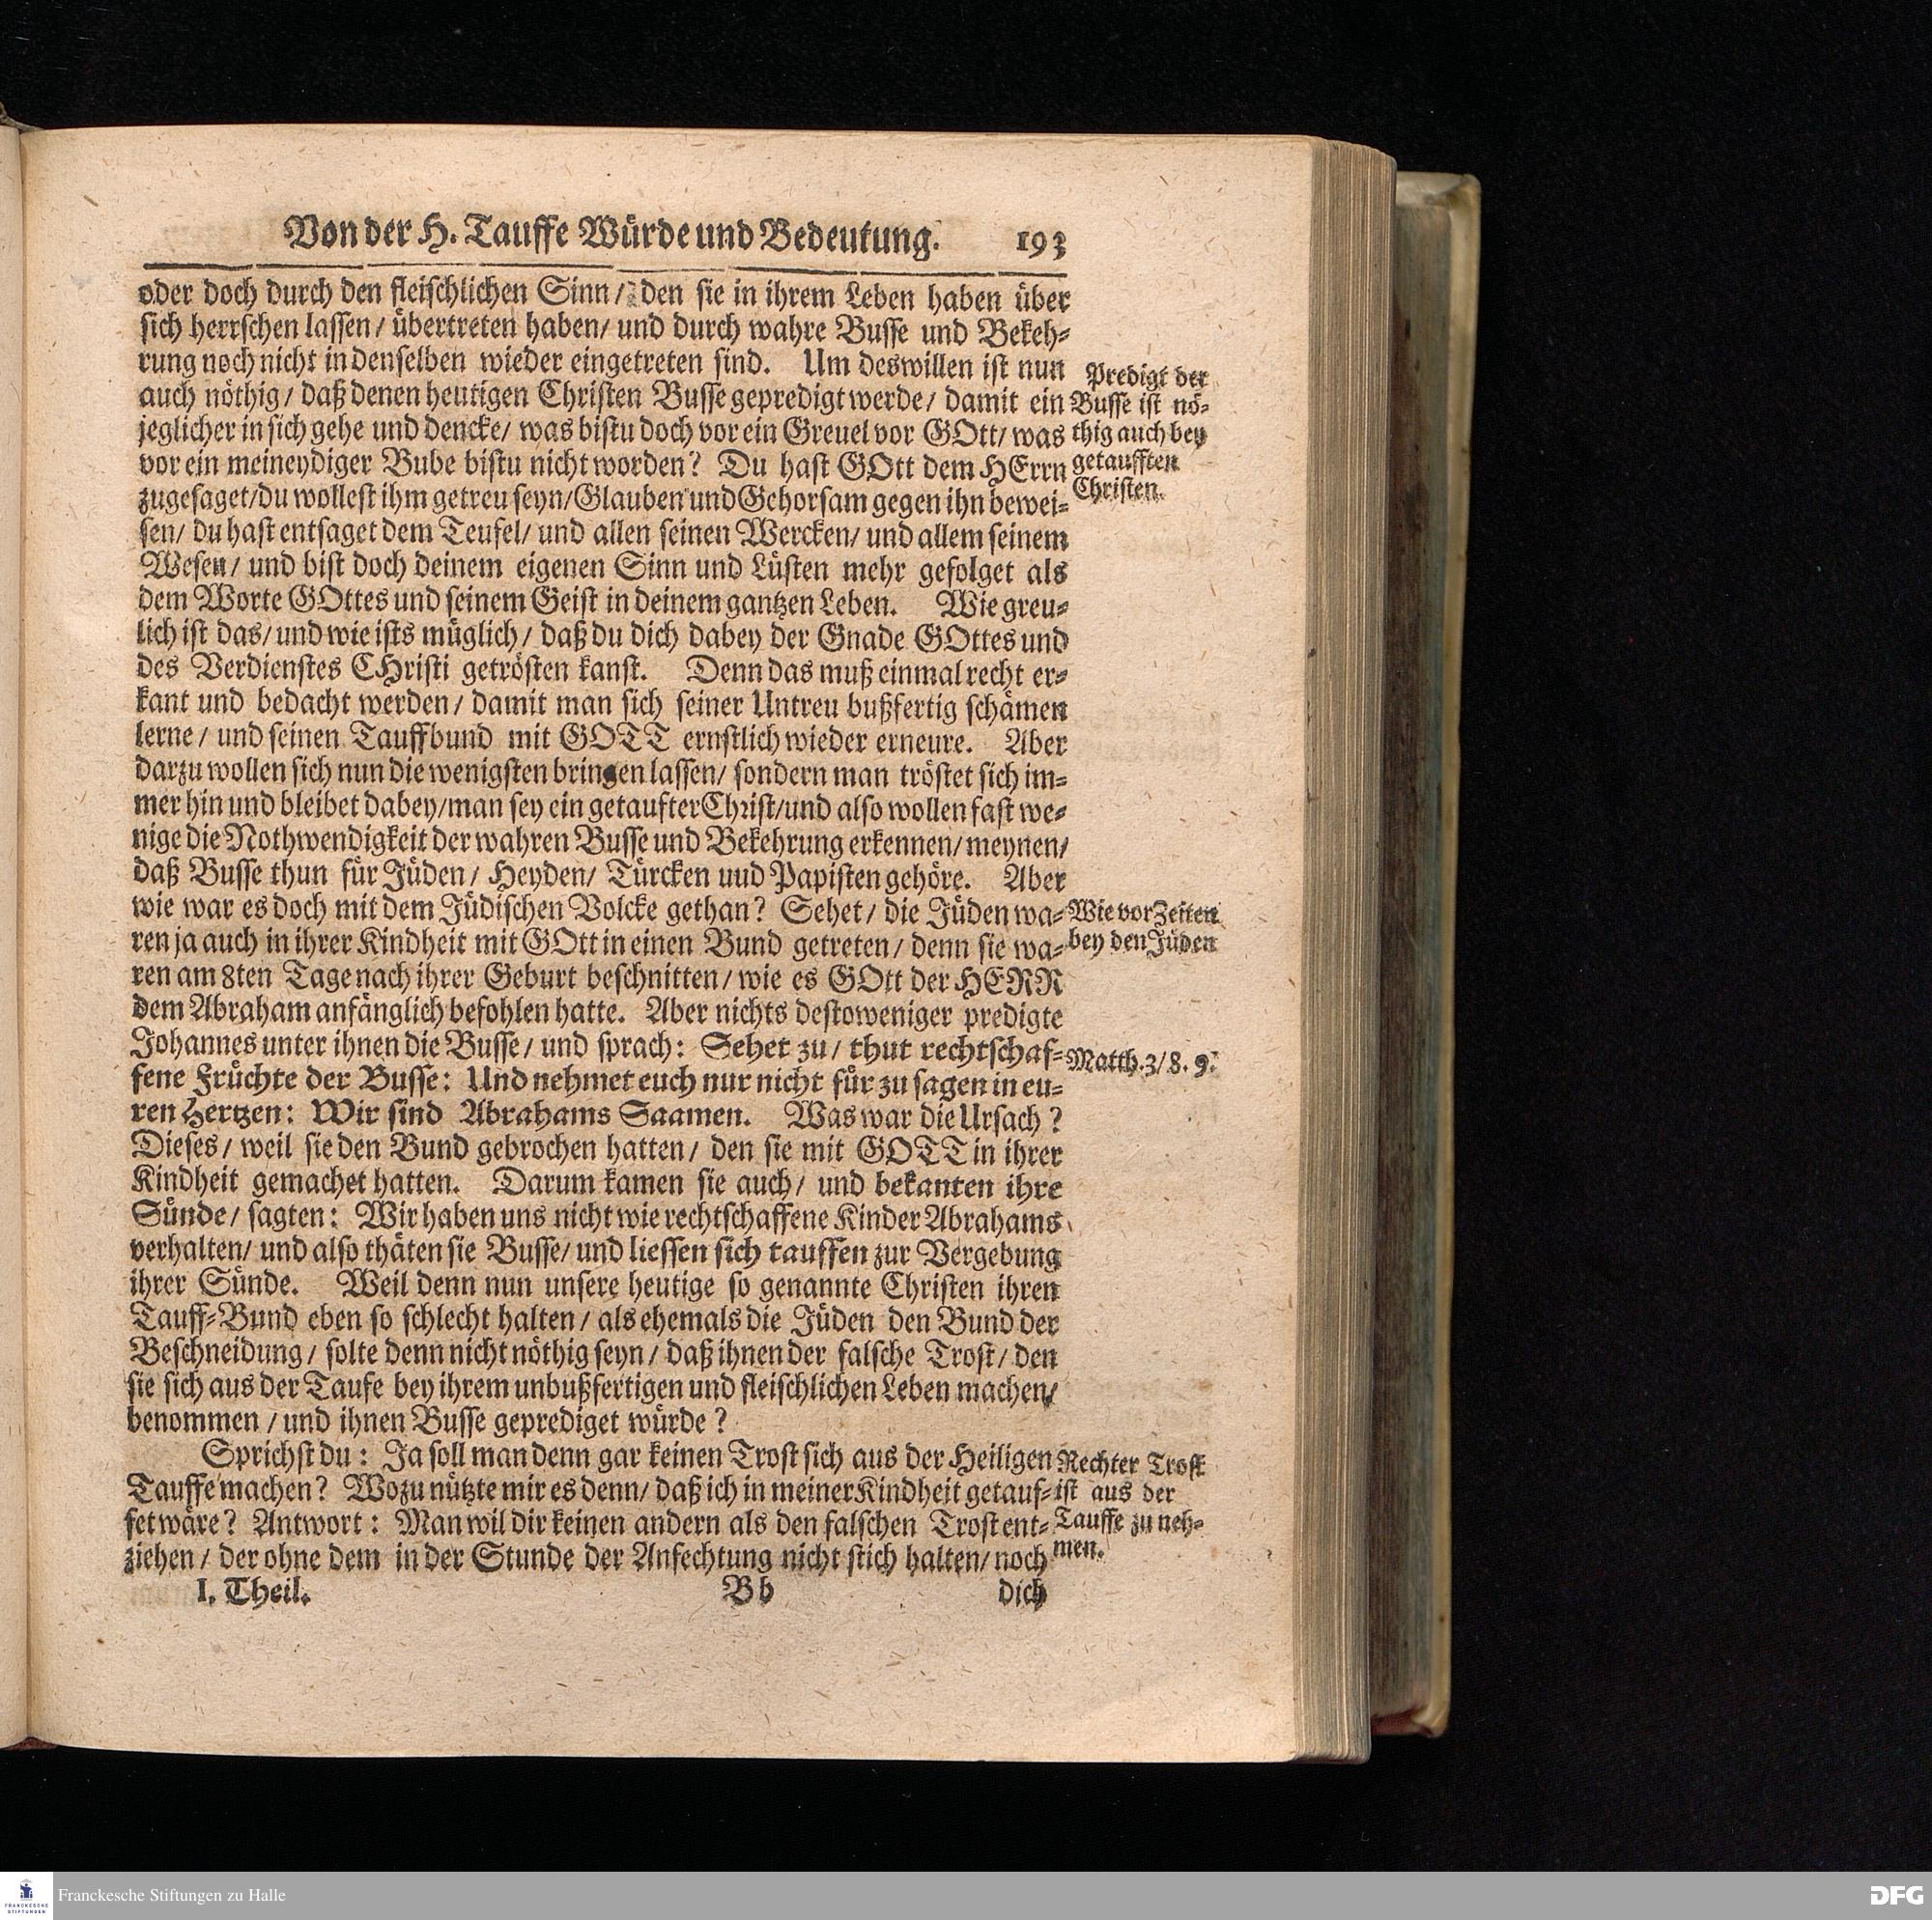 Von der H. Tauffe Würde und Bedeutung. 193
oder doch durch den fleischlichen Sinn / den sie in ihrem Leben haben über
sich herrschen lassen / übertreten haben / und durch wahre Busse und Bekeh-
rung noch nicht in denselben wieder eingetreten sind. Um deswillen ist nun
auch nöthig / daß denen heutigen Christen Busse gepredigt werde / damit ein
jeglicher in sich gehe und dencke / was bistu doch vor ein Greuel vor GOtt / was
vor ein meineydiger Bube bistu nicht worden? Du hast GOtt dem HErrn
zugesaget / du wollest ihm getreu seyn / Glauben und Gehorsam gegen ihn bewei-
sen / du hast entsaget dem Teufel / und allen seinen Wercken / und allem seinem
Wesen / und bist doch deinem eigenen Sinn und Lüsten mehr gefolget als
dem Worte GOttes und seinem Geist in deinem gantzen Leben. Wie greu-
lich ist das / und wie ists müglich / daß du dich dabey der Gnade GOttes und
des Verdienstes CHristi getrösten kanst. Denn das muß einmal recht er-
kant und bedacht werden / damit man sich seiner Untreu bußfertig schämen
lerne / und seinen Tauffbund mit GOTT ernstlich wieder erneure. Aber
darzu wollen sich nun die wenigsten bringen lassen / sondern man tröstet sich im-
mer hin und bleibet dabey / man sey ein getaufter Christ / und also wollen fast we-
nige die Nothwendigkeit der wahren Busse und Bekehrung erkennen / meynen /
daß Busse thun für Jüden / Heyden / Türcken uud Papisten gehöre. Aber
wie war es doch mit dem Jüdischen Volcke gethan? Sehet / die Jüden wa-
ren ja auch in ihrer Kindheit mit GOtt in einen Bund getreten / denn sie wa-
ren am 8ten Tage nach ihrer Geburt beschnitten / wie es GOtt der HERR
dem Abraham anfänglich befohlen hatte. Aber nichts destoweniger predigte
Johannes unter ihnen die Busse / und sprach: Sehet zu / thut rechtschaf-
fene Früchte der Busse: Und nehmet euch nur nicht für zu sagen in eu-
ren Hertzen: Wir sind Abrahams Saamen. Was war die Ursach?
Dieses / weil sie den Bund gebrochen hatten / den sie mit GOTT in ihrer
Kindheit gemachet hatten. Darum kamen sie auch / und bekanten ihre
Sünde / sagten: Wir haben uns nicht wie rechtschaffene Kinder Abrahams
verhalten / und also thäten sie Busse / und liessen sich tauffen zur Vergebung
ihrer Sünde. Weil denn nun unsere heutige so genannte Christen ihren
Tauff-Bund eben so schlecht halten / als ehemals die Jüden den Bund der
Beschneidung / solte denn nicht nöthig seyn / daß ihnen der falsche Trost / den
sie sich aus der Taufe bey ihrem unbußfertigen und fleischlichen Leben machen /
benommen / und ihnen Busse geprediget würde?
Sprichst du: Ja soll man denn gar keinen Trost sich aus der Heiligen
Tauffe machen? Wozu nützte mir es denn / daß ich in meiner Kindheit getauf-
fet wäre? Antwort: Man wil dir keinen andern als den falschen Trost ent-
ziehen / der ohne dem in der Stunde der Anfechtung nicht stich halten / noch
I. Theil. Bb dich
Predigt der
Busse ist nö-
thig auch bey
getaufften
Christen.
Wie vor Zeiten
bey den Jüden
Matth. 3/8. 9.
Rechter Trost
ist aus der
Tauffe zu neh-
men.
FRANCKESCHE
STIFTUNGEN
Franckesche Stiftungen zu Halle
DFG